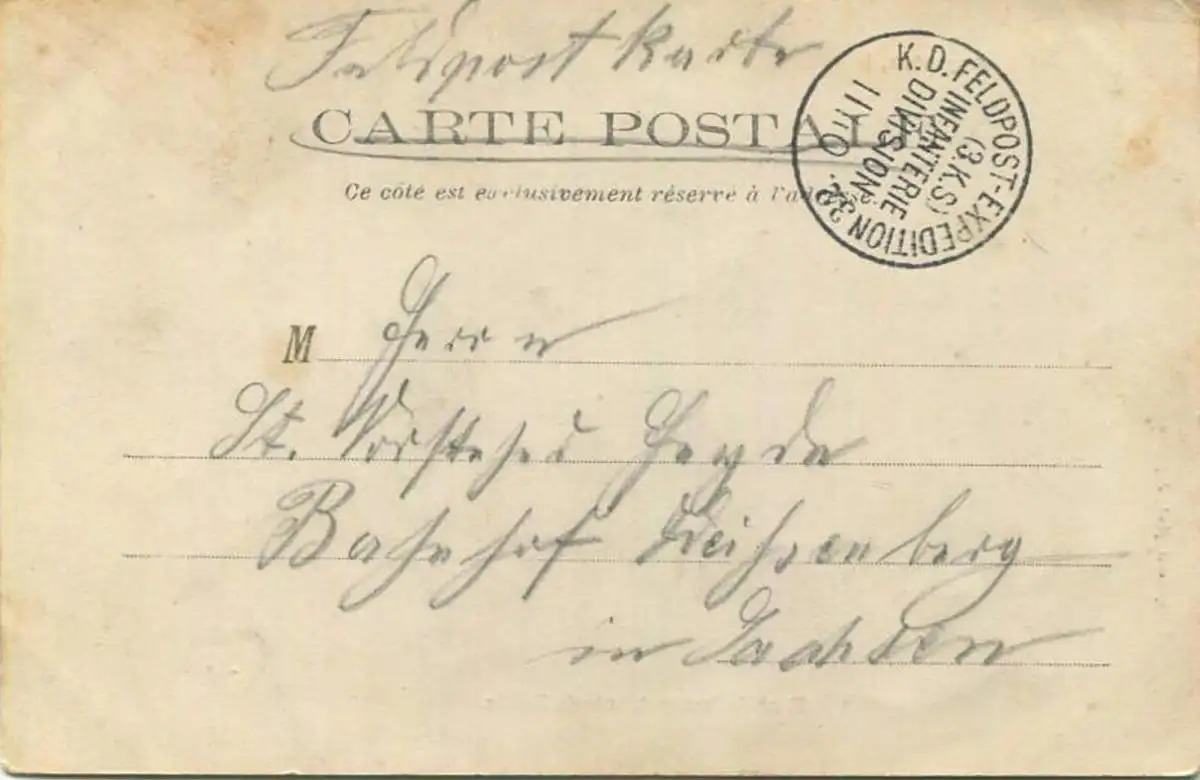 Feldpostkarte
CARTE POSTALE
Ce côté est exclusivement réservé à l'adresse.
K.D. FELDPOST-EXPEDITION
32.
INFANTERIE
DIVISION
(3.K.S)
M Herrn
St. Vorsteher Heyde
Bahnhof
in Sachsen